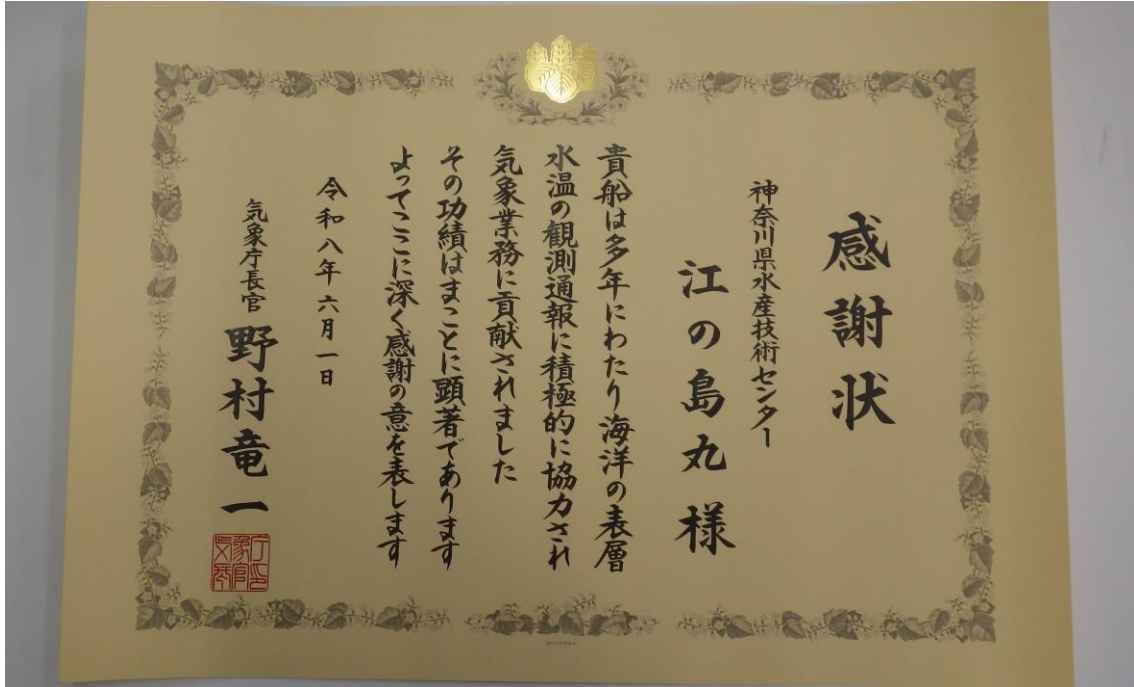 感謝状
神奈川県水産技術センター
江の島丸 様
貴船は多年にわたり海洋の表層
水温の観測通報に積極的に協力され
気象業務に貢献されました
その功績はまことに顕著であります
よってここに深く感謝の意を表します
令和八年六月一日
気象庁長官 野村竜一